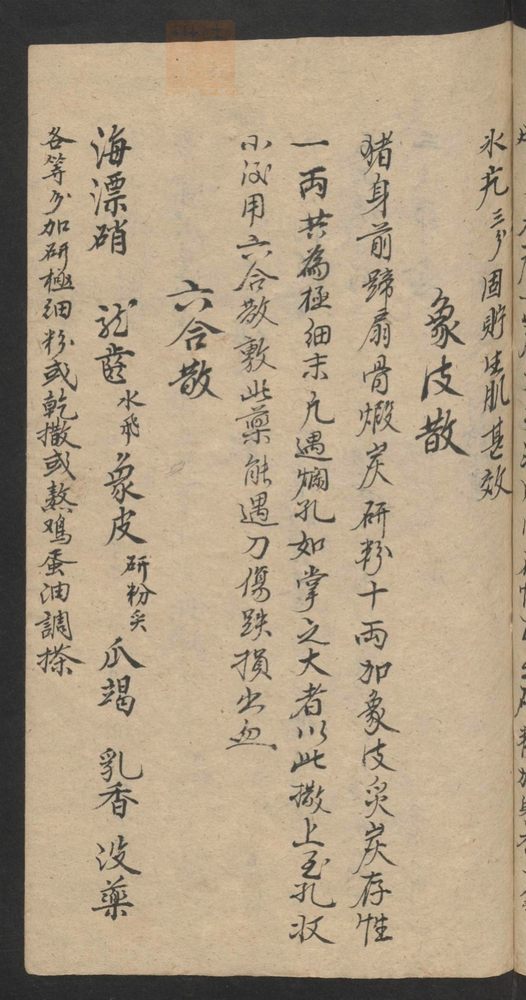 氷冗三分固貯生肌甚效
象皮散
猪身前蹄扇骨煅炭研粉十両加象皮炙炭存性
一両共為極細末凢遇爛孔如掌之大者以此撒上至孔收
小後用六合散敷此藥能遇刀傷跌損出血
六合散
海漂硝 龍齒水飛 象皮研粉炙 瓜竭 乳香 没藥
各等分加研極細粉或乾撒或熬鸡蛋油調搽